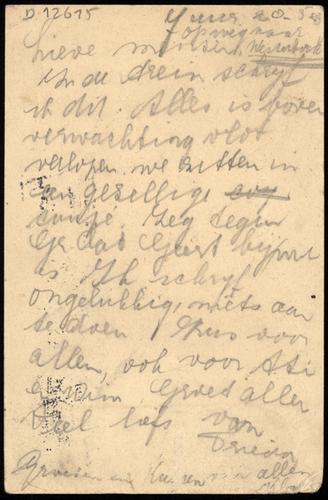 D 12615
20-5-43
op weg naar Westerbork
Lieve
In de trein schrijf
ik dit. Alles is boven
verwachting vlot
verlopen. we zitten in
een gezellige
Zeg tegen
dat Geert bij ons
is. Ik schrijf
ongelukkig, niets aan
te doen. Kus voor
allen, ook voor
en Wim Groet allen
Veel liefs van
Groeten en kussen van allen